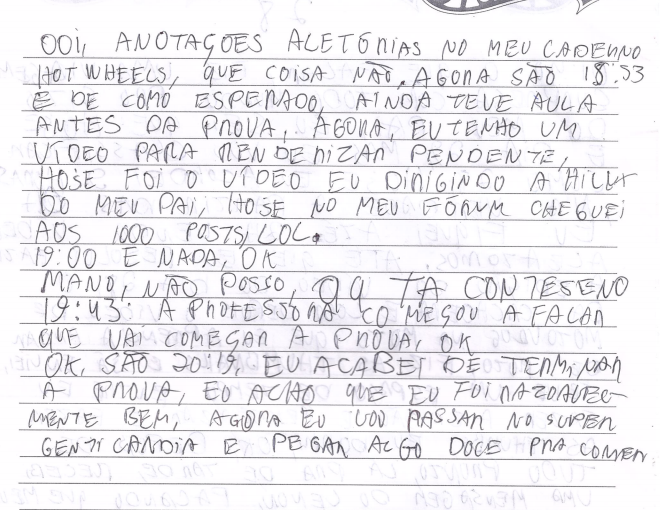 OOI, ANOTAÇÕES ALETÓRIAS NO MEU CADERNO
HOT WHEELS, QUE COISA NÃO. AGORA SÃO 18:53
E DE COMO ESPERADO, AINDA TEVE AULA
ANTES DA PROVA, AGORA, EU TENHO UM
VÍDEO PARA RENDERIZAR PENDENTE,
HOSE FOI O VIDEO EU DIRIGINDO A HILUX
DO MEU PAI, HOSE NO MEU FÓRUM CHEGUEI
AOS 1000 POSTS, LOL.
19:00 E NADA, OK
MANO, NÃO POSSO, OQ TÁ CONTESENO
19:43: A PROFESSORA COMEÇOU A FALAR
QUE VAI COMEÇAR A PROVA, OK
OK, SÃO 20:19, EU ACABEI DE TERMINAR
A PROVA, EU ACHO QUE EU FUI RAZOAVEL-
MENTE BEM, AGORA EU VOU PASSAR NO SUPER
GENTICANDIA E PEGAR ALGO DOCE PRA COMER